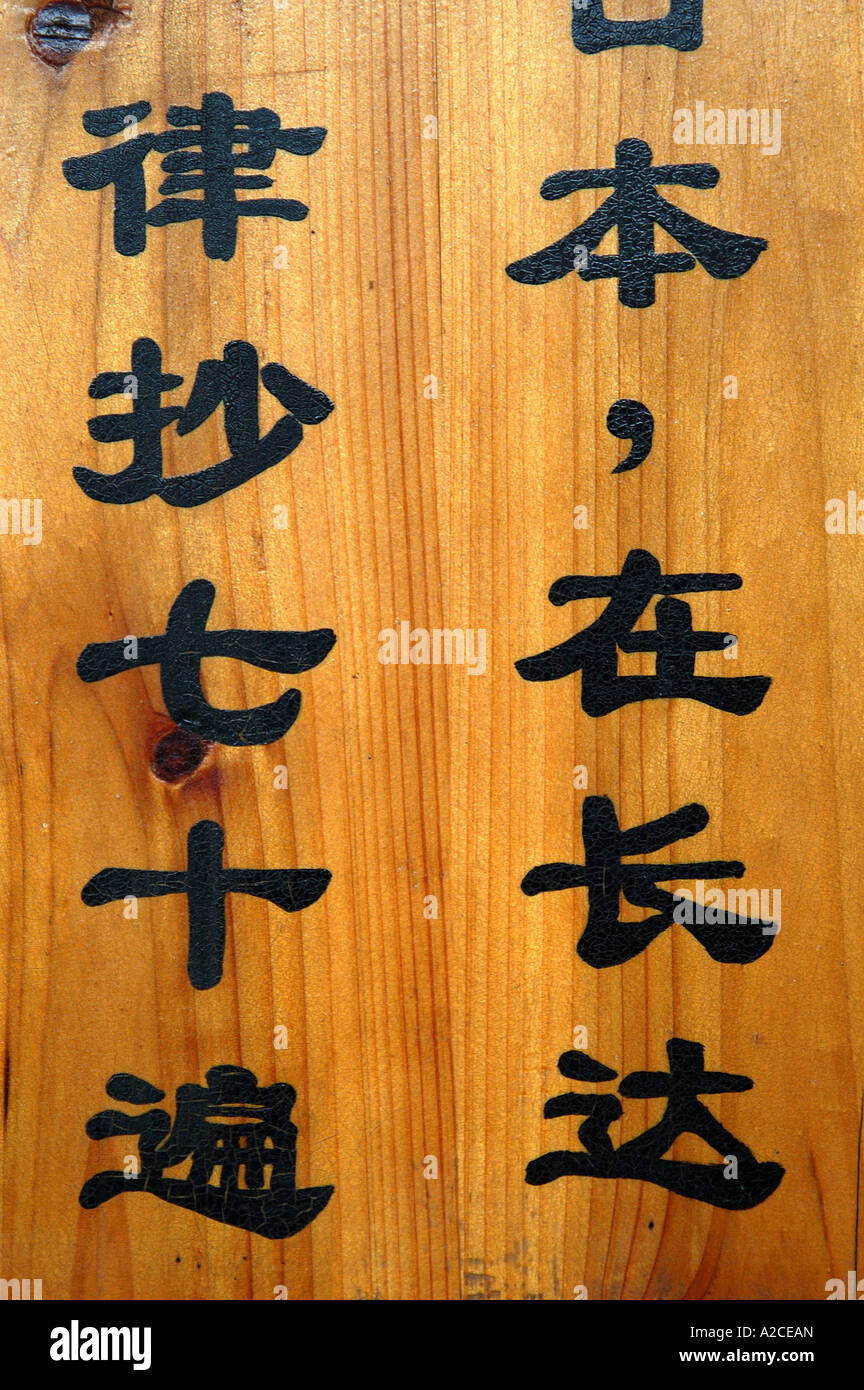 本，在长达
律抄七十遍
alamy
alamy
alamy
alamy
Image ID: A2CEAN
www.alamy.com